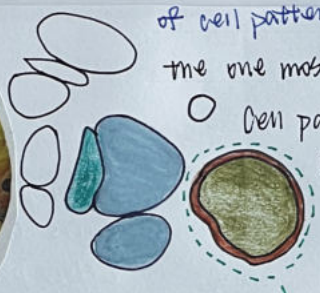 of cell patte
the one mos
Cell pa